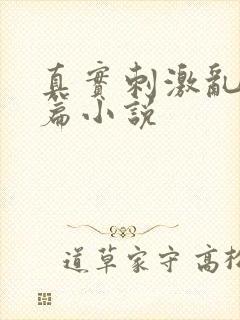 真實刺激亂
篇小說
道草家守 高松